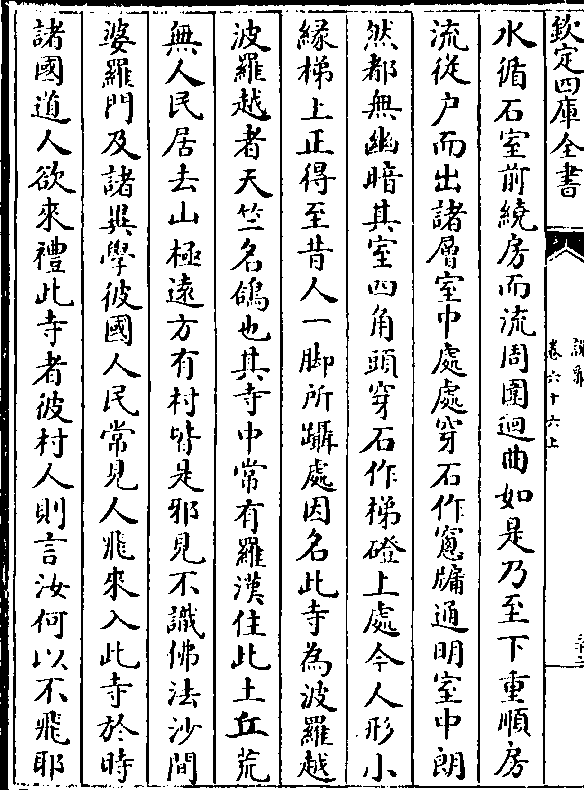 欽定四庫全書
說郛
卷六十六上
水循石室前繞房而流周圍迴曲如是乃至下重順房
流從户而出諸層室中處處穿石作窻牖通明室中朗
然都無幽暗其室四角頭穿石作梯磴上處今人形小
緣梯上正得至昔人一脚所躡處因名此寺為波羅越
波羅越者天竺名鴿也其寺中常有羅漢住此土丘荒
無人民居去山極遠方有村皆是邪見不識佛法沙間
婆羅門及諸異學彼國人民常見人飛來入此寺於時
諸國道人欲來禮此寺者彼村人則言汝何以不飛耶